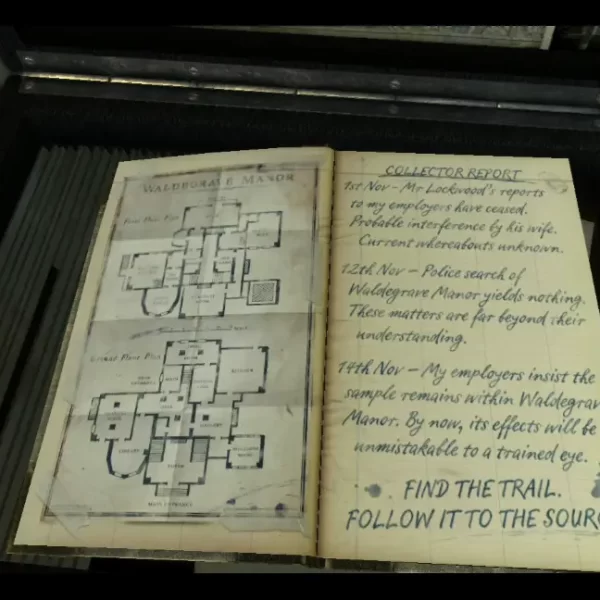 WALDEGRAVE MANOR
First Floor Plan
Ground Floor Plan
LIBRARY
MAIN ENTRANCE
COLLECTOR REPORT
1st Nov - Mr Lockwood's reports
to my employers have ceased.
Probable interference by his wife.
Current whereabouts unknown.
12th Nov - Police search of
Waldegrave Manor yields nothing.
These matters are far beyond their
understanding.
14th Nov - My employers insist the
sample remains within Waldegrav
Manor. By now, its effects will be
unmistakable to a trained eye.
FIND THE TRAIL.
FOLLOW IT TO THE SOUR